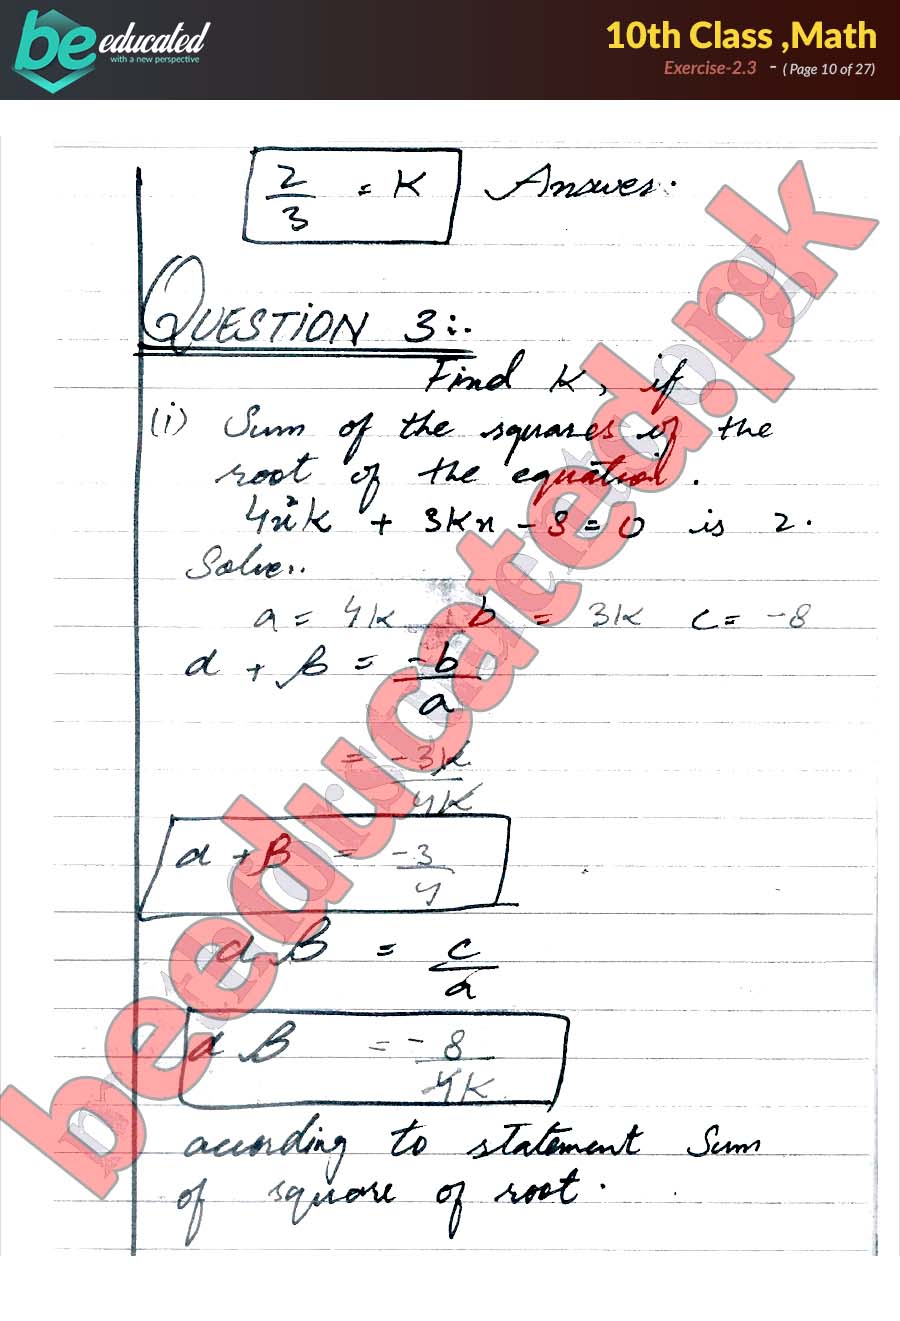 be educated
with a new perspective
10th Class ,Math
Exercise-2.3 - ( Page 10 of 27)
2/3 = K Answer.
QUESTION 3:-
Find K, if
(i) Sum of the squares of the
root of the equation.
4x²K + 3Kx - 8 = 0 is 2.
Solve:.
a = 4K b = 3K c = -8
α + β = -b/a
= -3K/4K
α + β = -3/4
α β = c/a
α β = -8/4K
according to statement Sum
of square of root.
beeducated.pk